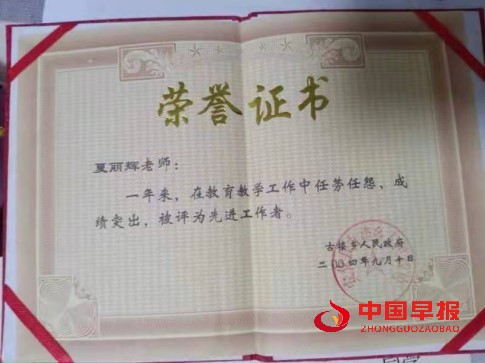 荣誉证书
夏丽辉老师：
一年来，在教育教学工作中任劳任怨，成
绩突出，被评为先进工作者。
古楼乡人民政府
二〇〇四年九月十日
中国早报
ZHONGGUOZAOBAO